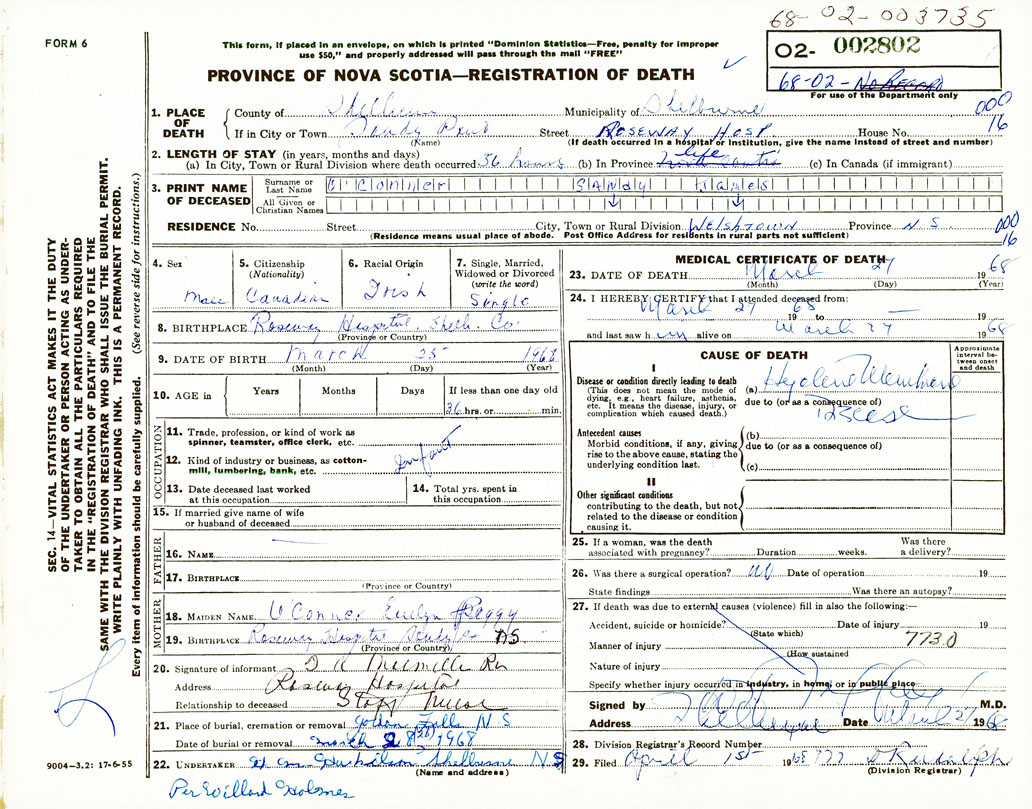 68-02-003735
FORM 6
This form, if placed in an envelope, on which is printed "Dominion Statistics—Free, penalty for improper
use $50," and properly addressed will pass through the mail "FREE"
PROVINCE OF NOVA SCOTIA—REGISTRATION OF DEATH
02- 002802
68-02-No Record
For use of the Department only
1. PLACE OF DEATH
County of Shelburne Municipality of Shelburne 000
If in City or Town Sandy Point Street Roseway Hosp. House No. 16
(Name) (If death occurred in a hospital or institution, give the name instead of street and number)
2. LENGTH OF STAY (in years, months and days)
(a) In City, Town or Rural Division where death occurred 36 hours (b) In Province life (c) In Canada (if immigrant)
3. PRINT NAME OF DECEASED
Surname or Last Name O'Conner Sandy James
All Given or Christian Names
RESIDENCE No. Street City, Town or Rural Division Welshtown Province N S 000
(Residence means usual place of abode. Post Office Address for residents in rural parts not sufficient) 16
4. Sex Male
5. Citizenship (Nationality) Canadian
6. Racial Origin Irish
7. Single, Married, Widowed or Divorced (write the word) Single
8. BIRTHPLACE Roseway Hospital, Shelb. Co.
(Province or Country)
9. DATE OF BIRTH March 25 1968
(Month) (Day) (Year)
10. AGE in Years Months Days If less than one day old
36 hrs. or min.
OCCUPATION
11. Trade, profession, or kind of work as
spinner, teamster, office clerk, etc.
12. Kind of industry or business, as cotton-
mill, lumbering, bank, etc. Infant
13. Date deceased last worked
at this occupation
14. Total yrs. spent in
this occupation
15. If married give name of wife
or husband of deceased
FATHER
16. NAME
17. BIRTHPLACE
(Province or Country)
MOTHER
18. MAIDEN NAME O'Conner Evelyn Peggy
19. BIRTHPLACE Roseway Hospital Sandy Pt NS
(Province or Country)
20. Signature of informant
Address Roseway Hospital
Relationship to deceased Staff Nurse
21. Place of burial, cremation or removal Falls N S
Date of burial or removal March 28 (26) 1968
22. UNDERTAKER Shelburne N S
(Name and address)
Per Willard Holmes
MEDICAL CERTIFICATE OF DEATH
23. DATE OF DEATH March 27 1968
(Month) (Day) (Year)
24. I HEREBY CERTIFY that I attended deceased from:
March 27 68
19 to — 19
and last saw h im alive on March 27 1968
CAUSE OF DEATH
Approximate interval between onset and death
I
Disease or condition directly leading to death
(This does not mean the mode of
dying, e.g., heart failure, asthenia,
etc. It means the disease, injury, or
complication which caused death.)
(a) Hyaline Membrane
due to (or as a consequence of)
Disease
Antecedent causes
Morbid conditions, if any, giving
rise to the above cause, stating the
underlying condition last.
(b)
due to (or as a consequence of)
(c)
II
Other significant conditions
contributing to the death, but not
related to the disease or condition
causing it.
25. If a woman, was the death Was there
associated with pregnancy? Duration weeks. a delivery?
26. Was there a surgical operation? No Date of operation 19
State findings Was there an autopsy?
27. If death was due to external causes (violence) fill in also the following:—
Accident, suicide or homicide? Date of injury 19
(State which)
Manner of injury 773.0
(How sustained
Nature of injury
Specify whether injury occurred in industry, in home, or in public place
Signed by M.D.
Address Shelburne Date 27 1968
28. Division Registrar's Record Number
29. Filed April 1st 1968 D Rudolph
(Division Registrar)
SEC. 14—VITAL STATISTICS ACT MAKES IT THE DUTY
OF THE UNDERTAKER OR PERSON ACTING AS UNDER-
TAKER TO OBTAIN ALL THE PARTICULARS REQUIRED
IN THE "REGISTRATION OF DEATH" AND TO FILE THE
SAME WITH THE DIVISION REGISTRAR WHO SHALL ISSUE THE BURIAL PERMIT.
WRITE PLAINLY WITH UNFADING INK. THIS IS A PERMANENT RECORD.
Every item of information should be carefully supplied. (See reverse side for instructions.)
9004-3.2: 17-6-55